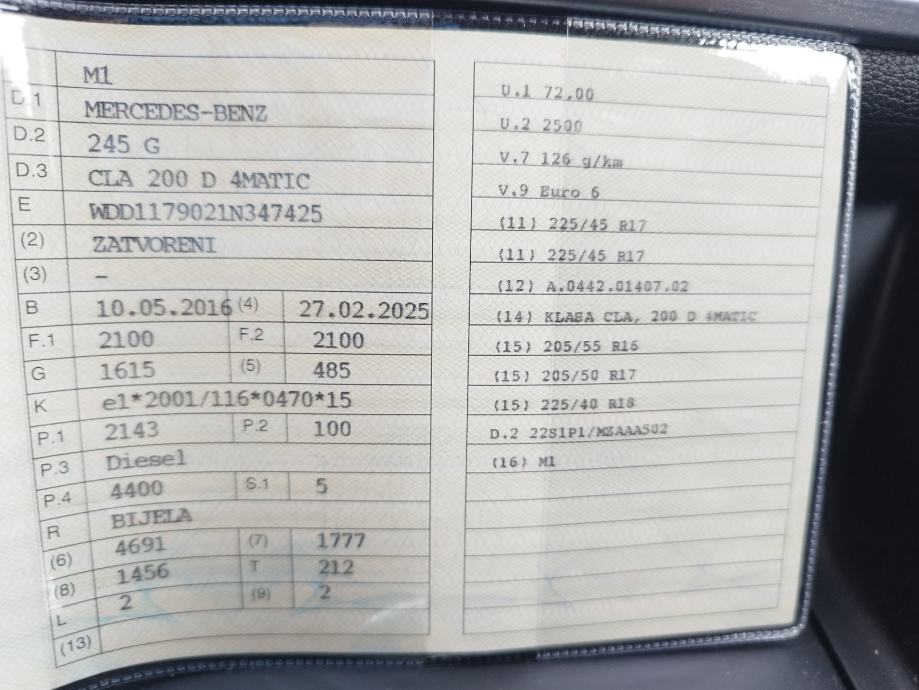 M1
D.1 MERCEDES-BENZ
D.2 245 G
D.3 CLA 200 D 4MATIC
E WDD1179021N347425
(2) ZATVORENI
(3) –
B 10.05.2016 (4) 27.02.2025
F.1 2100 F.2 2100
G 1615 (5) 485
K e1*2001/116*0470*15
P.1 2143 P.2 100
P.3 Diesel
P.4 4400 S.1 5
R BIJELA
(6) 4691 (7) 1777
(8) 1456 T 212
L 2 (9) 2
(13)
U.1 72,00
U.2 2500
V.7 126 g/km
V.9 Euro 6
(11) 225/45 R17
(11) 225/45 R17
(12) A.0442.01407.02
(14) KLASA CLA, 200 D 4MATIC
(15) 205/55 R16
(15) 205/50 R17
(15) 225/40 R18
D.2 22S1P1/MZAAA502
(16) M1